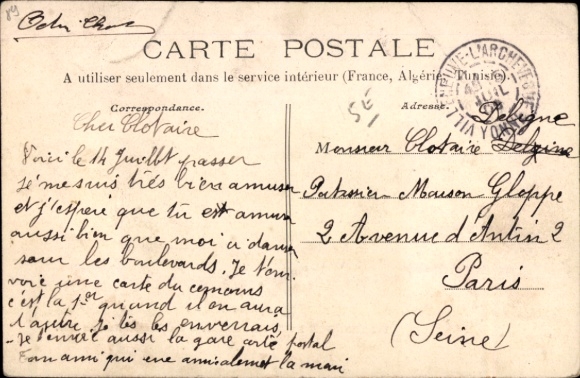 CARTE POSTALE
A utiliser seulement dans le service intérieur (France, Algérie, Tunisie)
Correspondance.
Adresse
5E
Cher Clotaire
Voici le 14 Juillet passer
Je me suis très bien amuser
et j'espere que tu est amuser
aussi bien que moi a danser
sour les boulevards. Je t'en
voie une carte du
c'est la 1er quand il on aura
d'autre je les enverrais
Je envoie aussi la gare carte postal
Ton ami qui
VILLENEUVE-L'ARCHEVEQUE
YONNE
Deligne
Monsieur Clotaire
Patissier Maison Gloppe
2 Avenue d'Antin 2
Paris
(Seine)